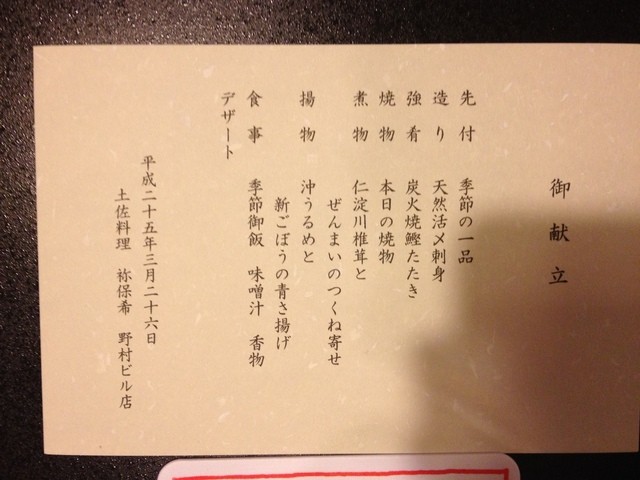 御献立
先付 季節の一品
造り 天然活〆刺身
強肴 炭火焼鰹たたき
焼物 本日の焼物
煮物 仁淀川椎茸と
ぜんまいのつくね寄せ
揚物 沖うるめと
新ごぼうの青さ揚げ
食事 季節御飯 味噌汁 香物
デザート
平成二十五年三月二十六日
土佐料理 祢保希 野村ビル店